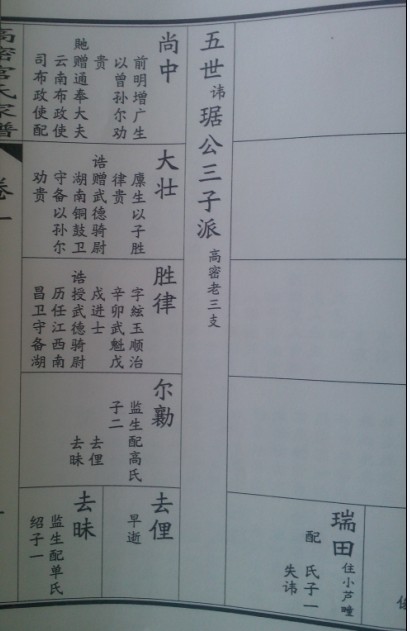 瑞田
住小芦疃
配 氏子一
失讳
五世讳琚公三子派
高密老三支
尚中
前明增广生
以曾孙尔劝
贵
貤赠通奉大夫
云南布政使
司布政使配
大壮
廪生以子胜
律贵
诰赠武德骑尉
湖南铜鼓卫
守备以孙尔
劝贵
胜律
字絃玉顺治
辛卯武魁戊
戌进士
诰授武德骑尉
历任江西南
昌卫守备湖
尔勷
监生配高氏
子二
去俚
去昧
去俚
早逝
去昧
监生配单氏
绍子一
高密官氏家谱
卷一